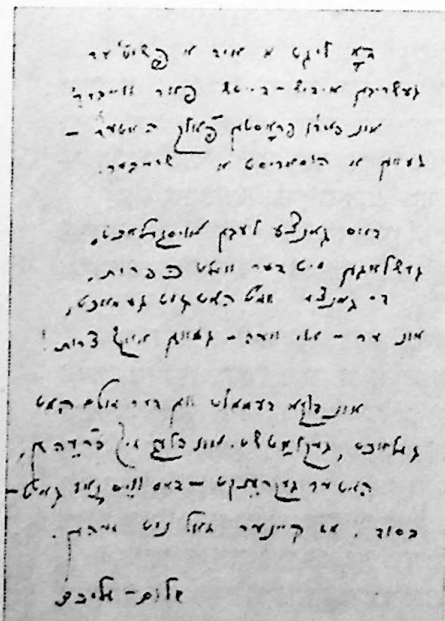 דאָ ליגט אַ איד אַ פּשוט'ער
געשריבען אידיש-דײטש פאַר ווייבער
און פאַר'ן פּראָסטען פאָלק האָט ער –
געווען אַ הומאָריסט אַ שרייבער.

דאָס גאַנצע לעבען אויסגעלאַכט,
געשלאָגען מיט דער וועלט כּפּרות.
די גאַנצע וועלט האָט גוט געמאַכט,
און ער – אוי וועה – געווען אויף צרות!

און דוקא דעמאָלט ווען דער עולם האָט
געלאַכט, געקלאַטשט און פלעגט זיך פרעהען,
האָט ער געקרענקט – דאָס ווייס נאָר גאָט –
בסוד, אַז קיינער זאָל ניט זעהען.

שלום-עליכם